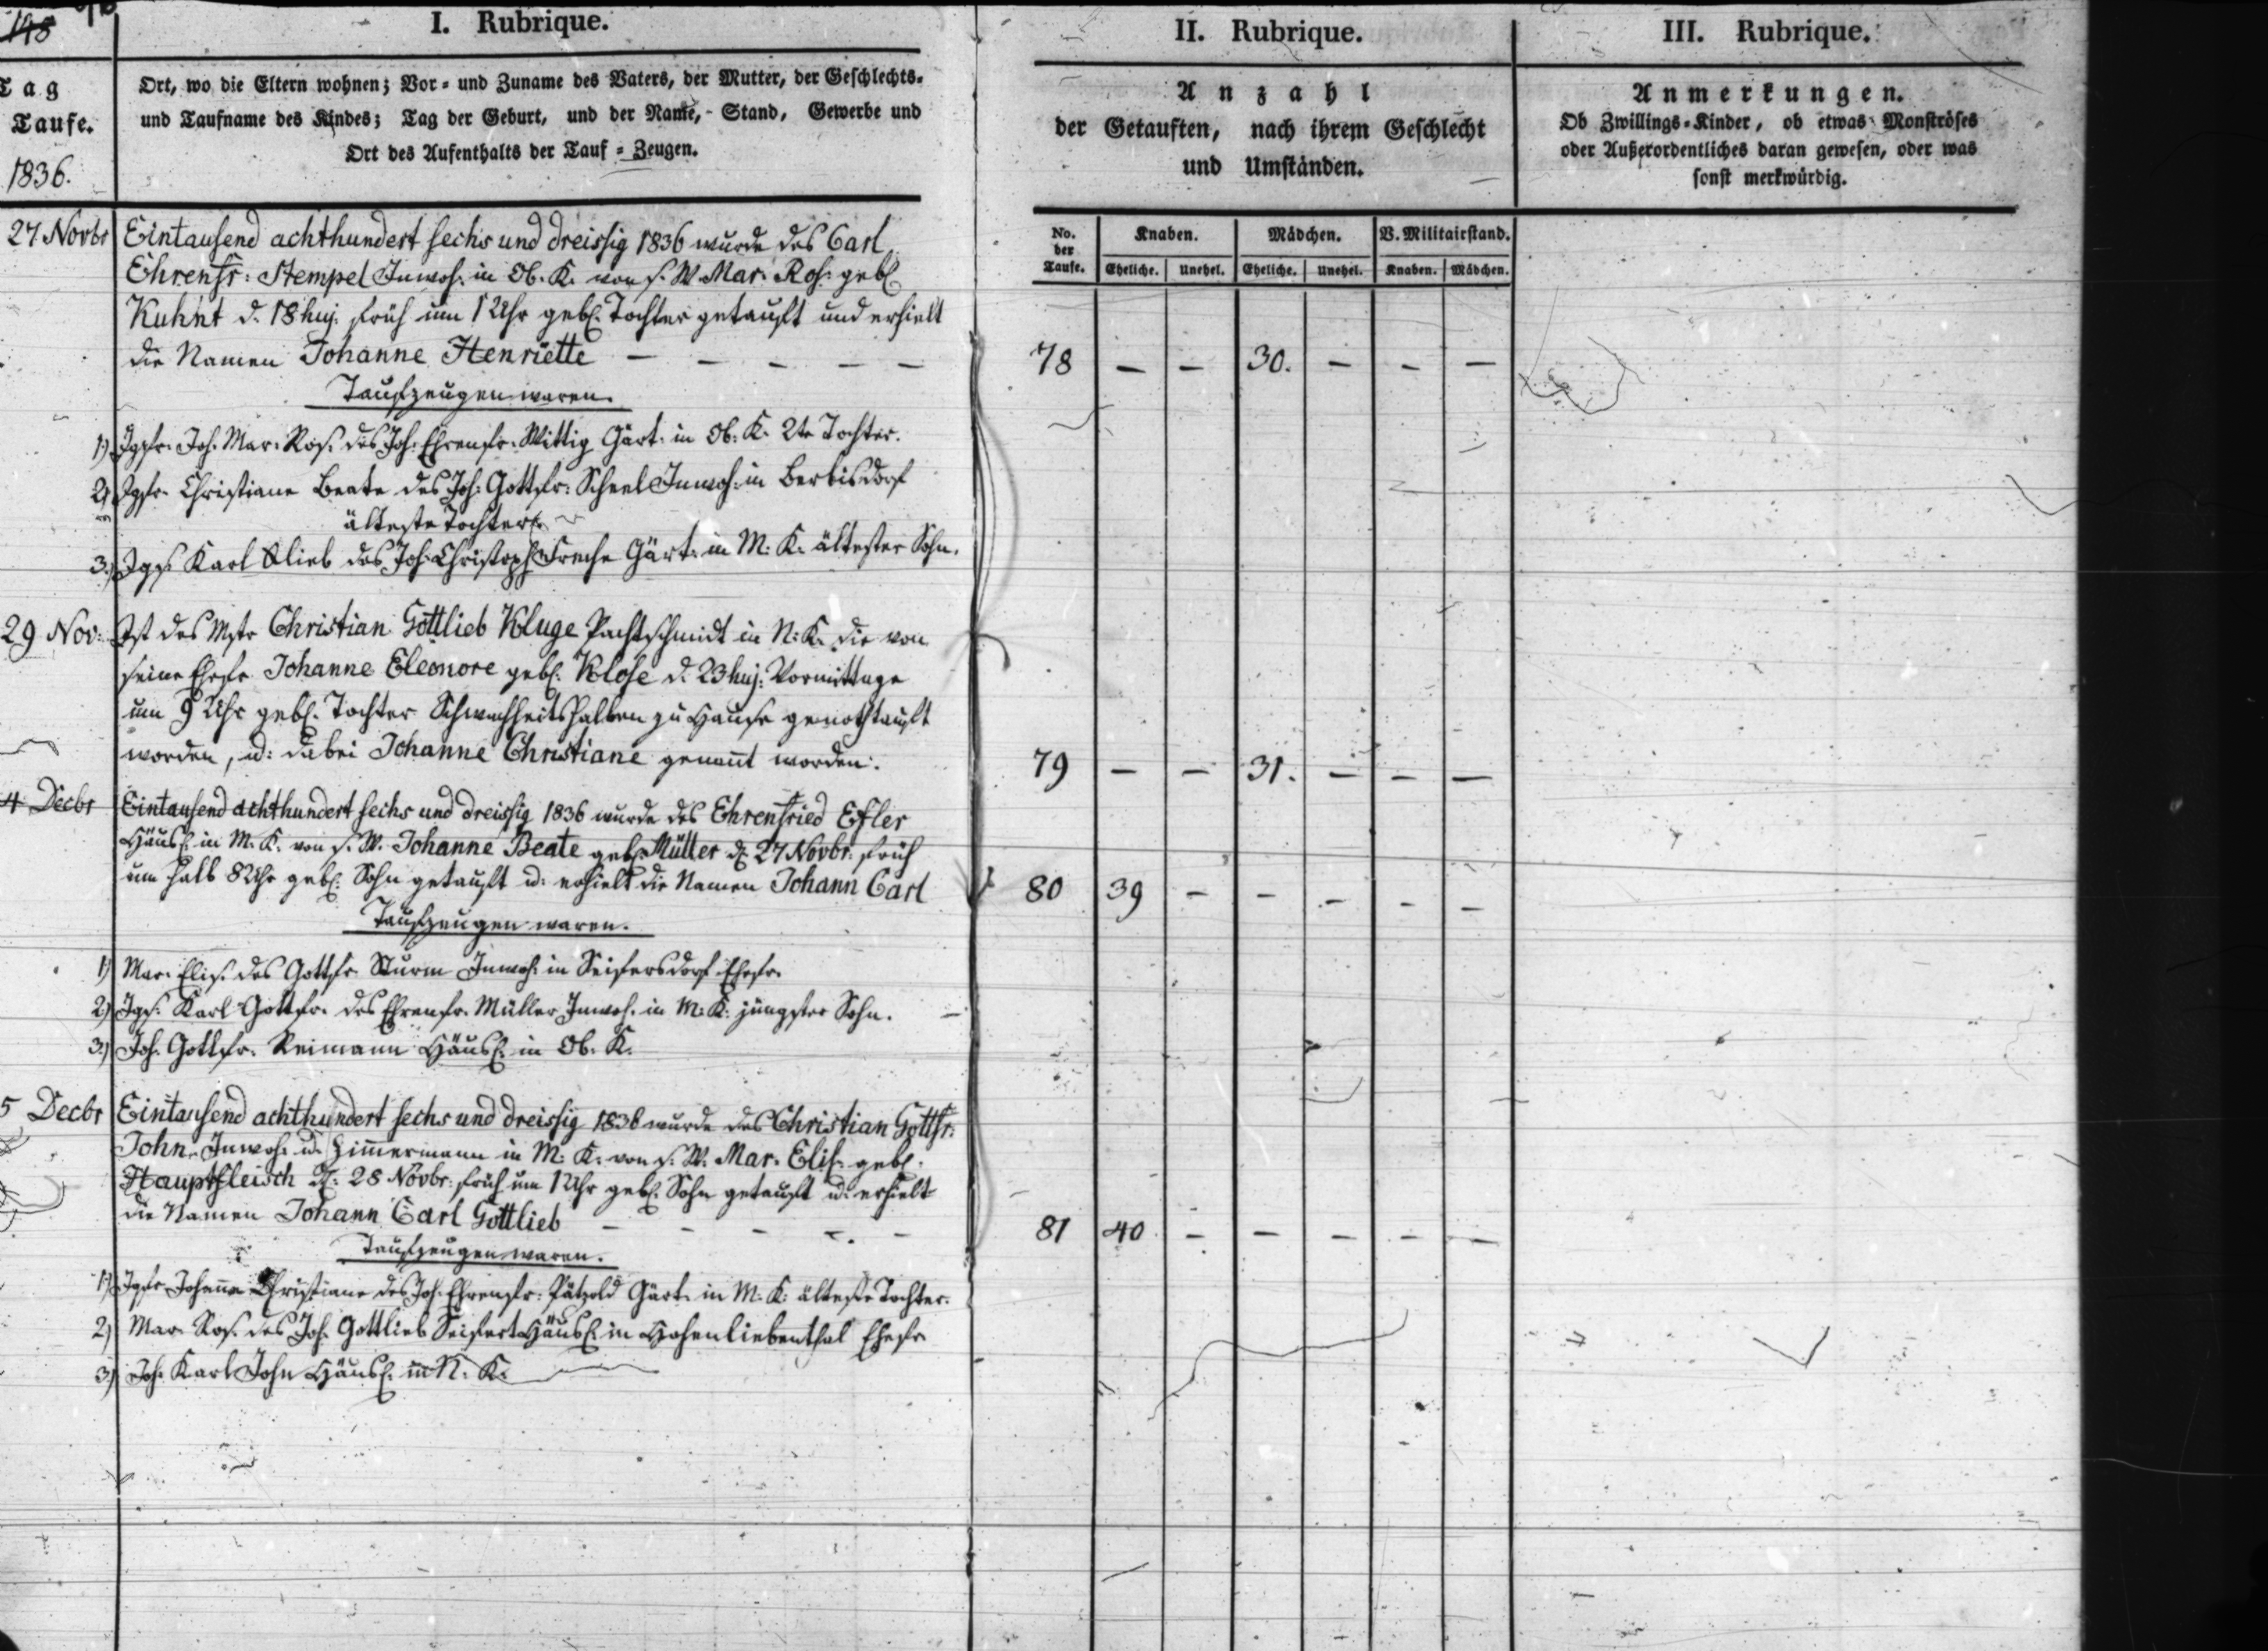 148
I. Rubrique.
II. Rubrique.
III. Rubrique.
Tag
Taufe.
1836.
Ort, wo die Eltern wohnen; Vor- und Zuname des Vaters, der Mutter, der Geschlechts-
und Taufname des Kindes; Tag der Geburt, und der Name, Stand, Gewerbe und
Ort des Aufenthalts der Tauf-Zeugen.
Anzahl
der Getauften, nach ihrem Geschlecht
und Umständen.
Anmerkungen.
Ob Zwillings-Kinder, ob etwas Monströses
oder Außerordentliches daran gewesen, oder was
sonst merkwürdig.
No. der Taufe.
Knaben. Mädchen. V. Militairstand.
Eheliche. Unehel. Eheliche. Unehel. Knaben. Mädchen.
27 Novbr Eintausend achthundert sechs und dreissig 1836 wurde des Carl
Ehrenfr: Stempel Inwoh. in Ob. K. von s. W. Mar. Ros. geb.
Kuhnt d. 18 huj. früh um 1 Uhr geb. Tochter getauft und erhielt
die Namen Johanne Henriette — — — — — 78 — — 30. — — —
Taufzeugen waren.
1) Jgfr. Joh. Mar. Ros. des Joh. Ehrenfr. Wittig Gärt. in Ob. K. 2te Tochter.
2) Jgfr. Christiane Beate des Joh. Gottfr: Scheel Inwoh. in Berbisdorf
älteste Tochter.
3.) Jgs. Karl Glieb des Joh. Christoph Freche Gärt. in M: K. ältester Sohn.
29 Nov: Ist des Mstr Christian Gottlieb Kluge Pachtschmidt in N: K. die von
seine Ehefr Johanne Eleonore geb. Klose d. 23 huj: Vormittags
um 9 Uhr geb. Tochter Schwachheitshalben zu Hause genothtauft
worden, u: dabei Johanne Christiane genannt worden. 79 — — 31. — — —
4 Decbr Eintausend achthundert sechs und dreissig 1836 wurde des Ehrenfried Efler
Häusl. in M. K. von s. W. Johanne Beate geb. Müller d. 27 Novbr. früh
um halb 8 Uhr geb. Sohn getauft u: erhielt die Namen Johann Carl 80 39 — — — — —
Taufzeugen waren.
1) Mar. Elis. des Gottfr Sturm Inwoh: in Seifersdorf Ehefr.
2) Jgs. Karl Gottfr. des Ehrenfr. Müller Inwoh. in M: K. jüngster Sohn.
3.) Joh. Gottfr. Reimann Häusl. in Ob. K.
5 Decbr Eintausend achthundert sechs und dreissig 1836 wurde des Christian Gottfr:
John Inwoh. u. Zimmermann in M: K. von s. W. Mar. Elis. geb.
Hauptfleisch d. 28 Novbr. früh um 1 Uhr geb. Sohn getauft u: erhielt
die Namen Johann Carl Gottlieb — — — — — 81 40 — — — — —
Taufzeugen waren.
1) Jgfr Johanne Christiane des Joh. Ehrenfr: Pätzold Gärt. in M. K. älteste Tochter.
2) Mar. Ros. des Joh. Gottlieb Seifert Häusl. in Hohenliebenthal Ehefr
3.) Joh. Karl John Häusl. in N. K.